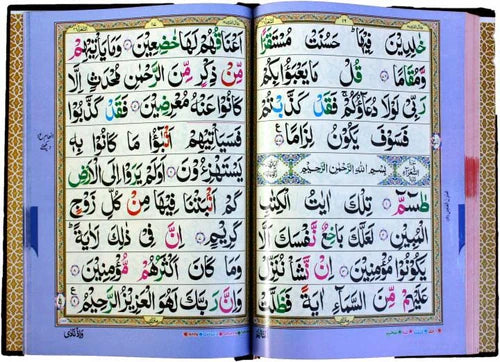 خٰلِدِیْنَ فِیْهَا ؕ حَسُنَتْ مُسْتَقَرًّا
وَّمُقَامًا ﴿۷۶﴾ قُلْ مَا یَعْبَؤُا بِكُمْ
رَبِّیْ لَوْلَا دُعَآؤُكُمْ ۚ فَقَدْ كَذَّبْتُمْ
فَسَوْفَ یَكُوْنُ لِزَامًا ﴿۷۷﴾
بِسْمِ اللّٰهِ الرَّحْمٰنِ الرَّحِیْمِ
طٰسٓمّٓ ﴿۱﴾ تِلْكَ اٰیٰتُ الْكِتٰبِ
الْمُبِیْنِ ﴿۲﴾ لَعَلَّكَ بَاخِعٌ نَّفْسَكَ اَلَّا
یَكُوْنُوْا مُؤْمِنِیْنَ ﴿۳﴾ اِنْ نَّشَاْ نُنَزِّلْ
عَلَیْهِمْ مِّنَ السَّمَآءِ اٰیَةً فَظَلَّتْ
اَعْنَاقُهُمْ لَهَا خٰضِعِیْنَ ﴿۴﴾ وَمَا یَاْتِیْهِمْ
مِّنْ ذِكْرٍ مِّنَ الرَّحْمٰنِ مُحْدَثٍ اِلَّا
كَانُوْا عَنْهُ مُعْرِضِیْنَ ﴿۵﴾ فَقَدْ كَذَّبُوْا
فَسَیَاْتِیْهِمْ اَنْۢبٰٓؤُا مَا كَانُوْا بِهٖ
یَسْتَهْزِءُوْنَ ﴿۶﴾ اَوَلَمْ یَرَوْا اِلَی الْاَرْضِ
كَمْ اَنْۢبَتْنَا فِیْهَا مِنْ كُلِّ زَوْجٍ
كَرِیْمٍ ﴿۷﴾ اِنَّ فِیْ ذٰلِكَ لَاٰیَةً ؕ
وَمَا كَانَ اَكْثَرُهُمْ مُّؤْمِنِیْنَ ﴿۸﴾
وَاِنَّ رَبَّكَ لَهُوَ الْعَزِیْزُ الرَّحِیْمُ ﴿۹﴾